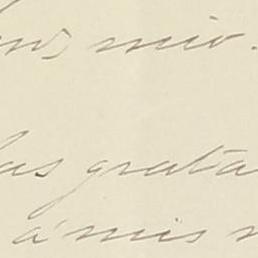 mio.
las gratas
á mis